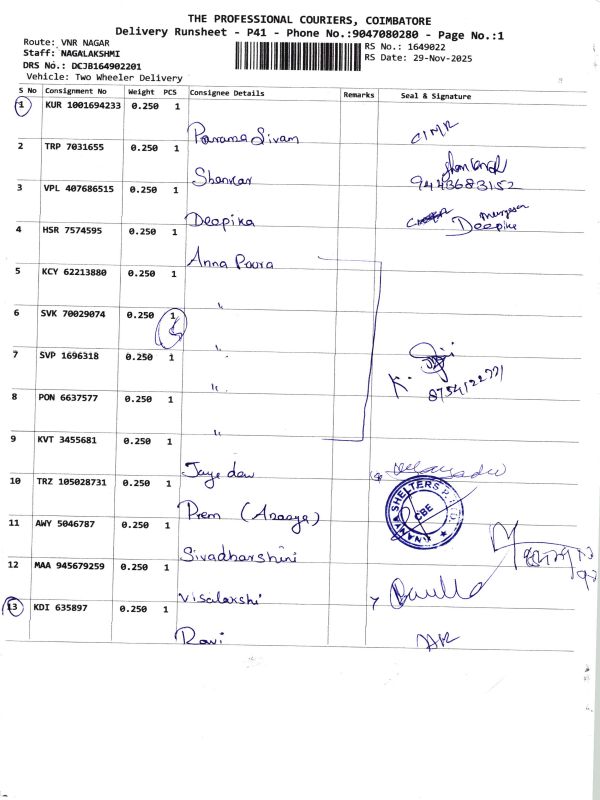 THE PROFESSIONAL COURIERS, COIMBATORE
Delivery Runsheet - P41 - Phone No.:9047080280 - Page No.:1
Route: VNR NAGAR
RS No.: 1649022
Staff: NAGALAKSHMI
RS Date: 29-Nov-2025
DRS No.: DCJB164902201
Vehicle: Two Wheeler Delivery
S No Consignment No Weight PCS Consignee Details Remarks Seal & Signature
1 KUR 1001694233 0.250 1
Parama Sivam
2 TRP 7031655 0.250 1
Shankar 9443683152
3 VPL 407686515 0.250 1
Deepika Deepika
4 HSR 7574595 0.250 1
Anna Poora
5 KCY 62213880 0.250 1
"
6 SVK 70029074 0.250 1
"
7 SVP 1696318 0.250 1
"
8 PON 6637577 0.250 1
"
9 KVT 3455681 0.250 1
Jayedev
10 TRZ 105028731 0.250 1
Prem (Anaoya)
CBE
11 AWY 5046787 0.250 1
Sivadharshini
12 MAA 945679259 0.250 1
Visalakshi
13 KDI 635897 0.250 1
Ravi